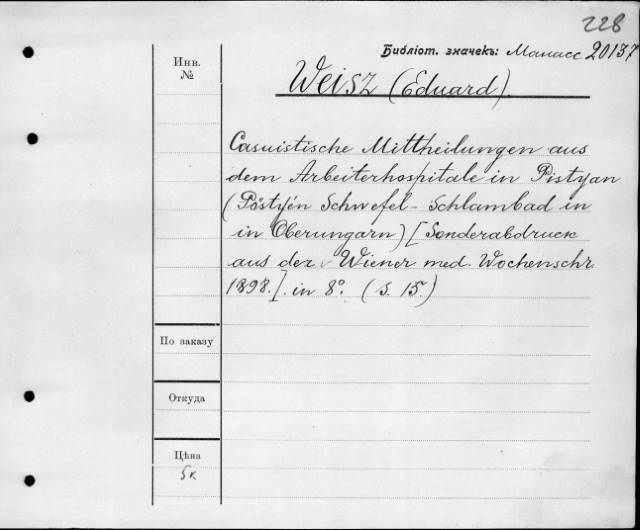 228
Библіот. значекъ: Манасс 20137
Инв.
№
Weisz (Eduard).
Casuistische Mittheilungen aus
dem Arbeiterhospitale in Pistyan
(Pöstyén Schwefel-Schlambad in
in Oberungarn) [Sonderabdruck
aus der Wiener med. Wochenschr.
1898.]. in 8°. (S. 15.)
По заказу
Откуда
Цѣна
5к